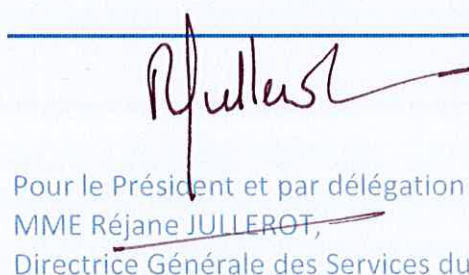 RJullerot
Pour le Président et par délégation
MME Réjane JULLEROT,
Directrice Générale des Services du